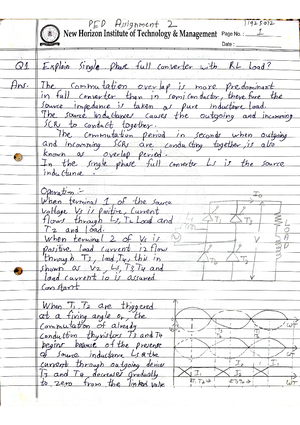 PED Assignment 2
New Horizon Institute of Technology & Management
Page No.: 1
Date:
Q1 Explain single phase full converter with RL Load?
Ans: The commutation overlap is more predominant
in full converter then in semiconductor, therefore the
source impedance is taken as pure inductive load.
The source inductances causes the outgoing and incoming
SCRs to contact together.
The commutation period in seconds when outgoing
and incoming SCRs are conducting together, is also
known as overlap period.
In the single phase full converter Ls is the source
inductance.
Operation:-
When terminal 1 of the source
voltage Vs is positive, current
flows through Ls, T1 Load and
T2 and load.
When terminal 2 of Vs is
positive load current flow
through T3, load, T4, this in
shown as V2, Ls, T3 T4 and
load current io is assumed
constant
When T1 T2 are triggered
at a firing angle the
commutation of already
conduction thyristor T3 and T4
begins because of the presence
of source inductance Ls the
current through outgoing device
T3 and T4 decreases gradually
to zero from the value
Io
T1
T3
Ls
wT
wT
T1 T2
T3 T4